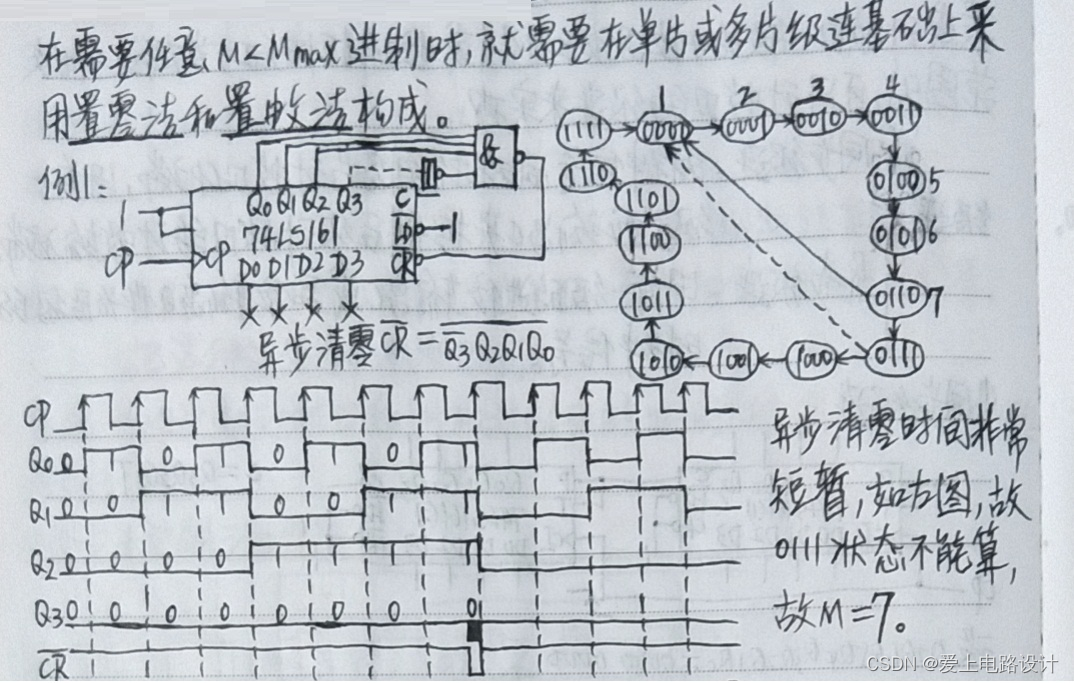 在需要任意M<Mmax进制时,就需要在单片或多片级连基础上采
用置零法和置数法构成。
例:
1
CP
Q0 Q1 Q2 Q3
C
74LS161
LD
1
>CP
D0 D1 D2 D3
CR
&
× × × ×
异步清零 CR = Q3Q2Q1Q0
1 2 3 4
1111 0000 0001 0010 0011
1110 0100 5
1101
1100 0101 6
1011 0110 7
1010 1001 1000 0111
CP
Q0 0 1 0 1 0 1 0 1
Q1 0 0 1 1 0 0 1 1
Q2 0 0 0 0 1 1 1 1
Q3 0 0 0 0 0 0 0 0
CR
异步清零时间非常
短暂,如左图,故
0111状态不能算,
故M=7。
CSDN @爱上电路设计